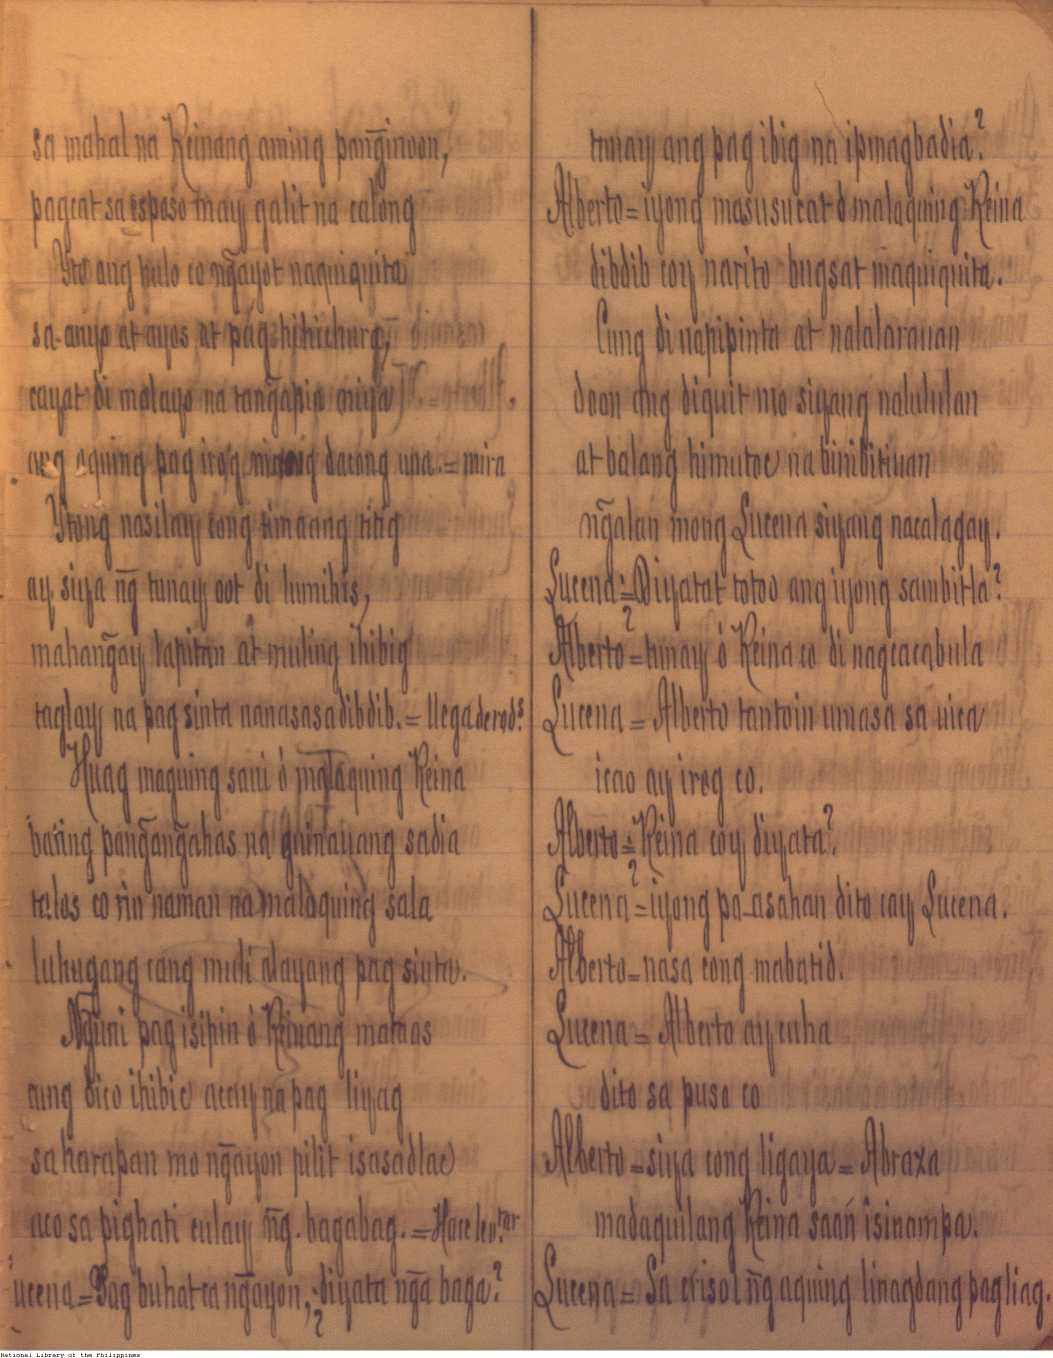 sa mahal na Reinang aming pang̃inoon,
pagcat sa esposo may galit na calong
Yto ang pulo co ng̃ayot naquiquita
sa-anyo at ayos at pag
cayat di malayo na tang̃apin niya
ang aquing pag irog daong una.=mira
Ytong nasilay cong timaang titig
ay siya ng̃ tunay oot di lumihis,
mahang̃ay lapitan at muling ihibig
taglay na pag sinta nanasasadibdib.=llega de rods.
Huag maguing saui ò mg̃alaquing Reina
baring pang̃ang̃ahas na guinauang sadia
talos co rin naman na malaquing sala
luhugang cang muli alayang pag sinta.
Ng̃uni pag isipin ò Reinang mataas
cung dico ihibic acay na pag liyag
sa harapan mo ng̃ayon pilit isasadlac
aco sa pighati culay ng̃. bagabag.=Hace lev.tar
ucena=Pag buhat ca ng̃ayon,¿diyata ng̃a baga?
tunay ang pag ibig na ipinagbadia?
Alberto=iyong masusucat ò malaquing Reina
dibdib coy narito bugsat maquiquita.
Cung di napipinta at nalalarauan
doon ang diquit mo siyang nalululan
at balang himutoc na binibitiuan
ng̃alan mong Lucena siyang nacalagay.
Lucena=¿Diyatat totoo ang iyong sambitla?
Alberto=tunay ò Reina co di nagcacabula
Lucena=Alberto tantoin umasa sa uica
icao ay irog co.
Alberto=¿Reina coy diyata?
Lucena=iyong pa-asahan dito cay Lucena.
Alberto=nasa cong mabatid.
Lucena=Alberto ay cuha
dito sa puso co
Alberto=siya cong ligaya=Abraza
madaquilang Reina saan isinampa.
Lucena=Sa crisol ng̃ aquing linagdang pagliag.
National Library of the Philippines